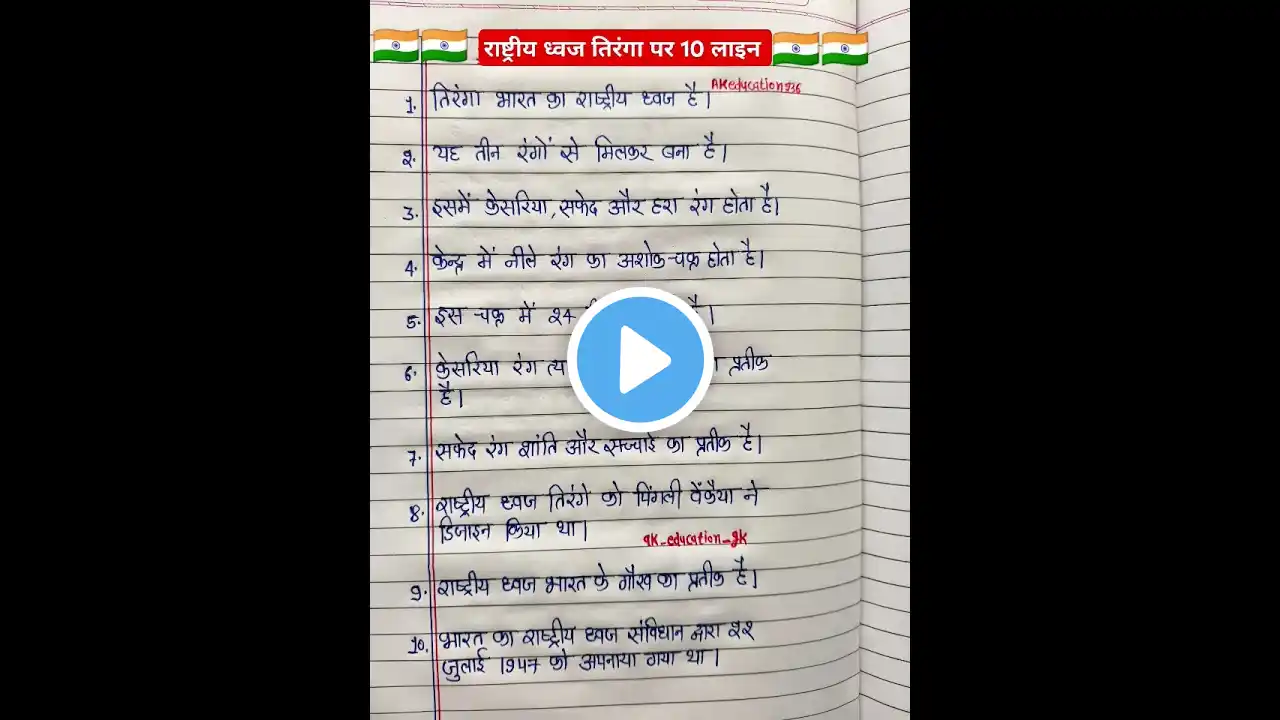 राष्ट्रीय ध्वज तिरंगा पर 10 लाइन
AKeducation936
1. तिरंगा भारत का राष्ट्रीय ध्वज है।
2. यह तीन रंगों से मिलकर बना है।
3. इसमें केसरिया, सफेद और हरा रंग होता है।
4. केन्द्र में नीले रंग का अशोक चक्र होता है।
5. इस चक्र में 24 है।
6. केसरिया रंग प्रतीक
है।
7. सफेद रंग शांति और सच्चाई का प्रतीक है।
8. राष्ट्रीय ध्वज तिरंगे को पिंगली वेंकैया ने
डिजाइन किया था।
ak_education_gk
9. राष्ट्रीय ध्वज भारत के गौरव का प्रतीक है।
10. भारत का राष्ट्रीय ध्वज संविधान द्वारा 22
जुलाई 1947 को अपनाया गया था।